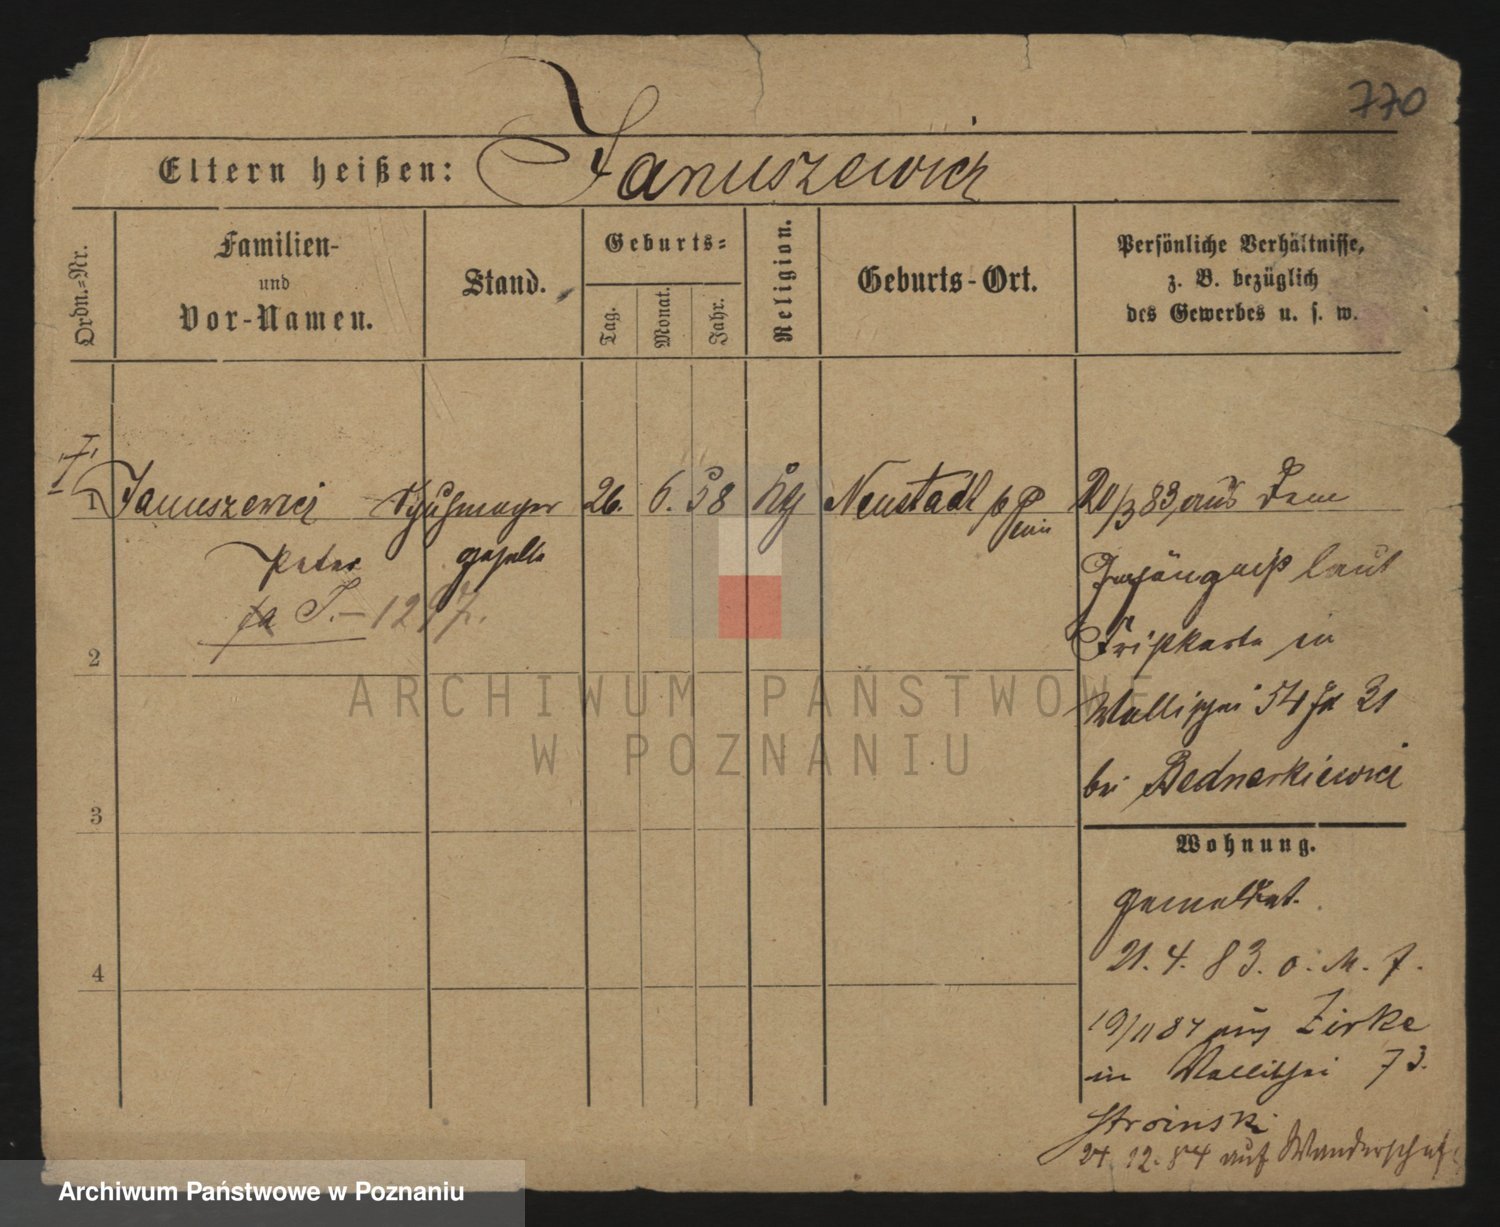 770
Eltern heißen: Januszewicz
Ordn.-Nr.
Familien-
und
Vor-Namen.
Stand.
Geburts-
Tag.
Monat.
Jahr.
Religion.
Geburts-Ort.
Persönliche Verhältnisse,
z. B. bezüglich
des Gewerbes u. s. w.
1 Januszewicz Schuhmacher 26. 6. 58 Neustadt 20/3 83 aus dem
Peter geselle
Gefängniß laut
J.-1297.
in
2
Wallischei 54
ARCHIWUM PAŃSTWOWE
W POZNANIU
bei Bednarkiewicz
3
Wohnung.
gemeldet.
4
21. 4. 83. o. M. F.
19/11 84 aus Zirke
in Wallischei 73.
Stroinski
24. 12. 84 auf Wanderschaft
Archiwum Państwowe w Poznaniu